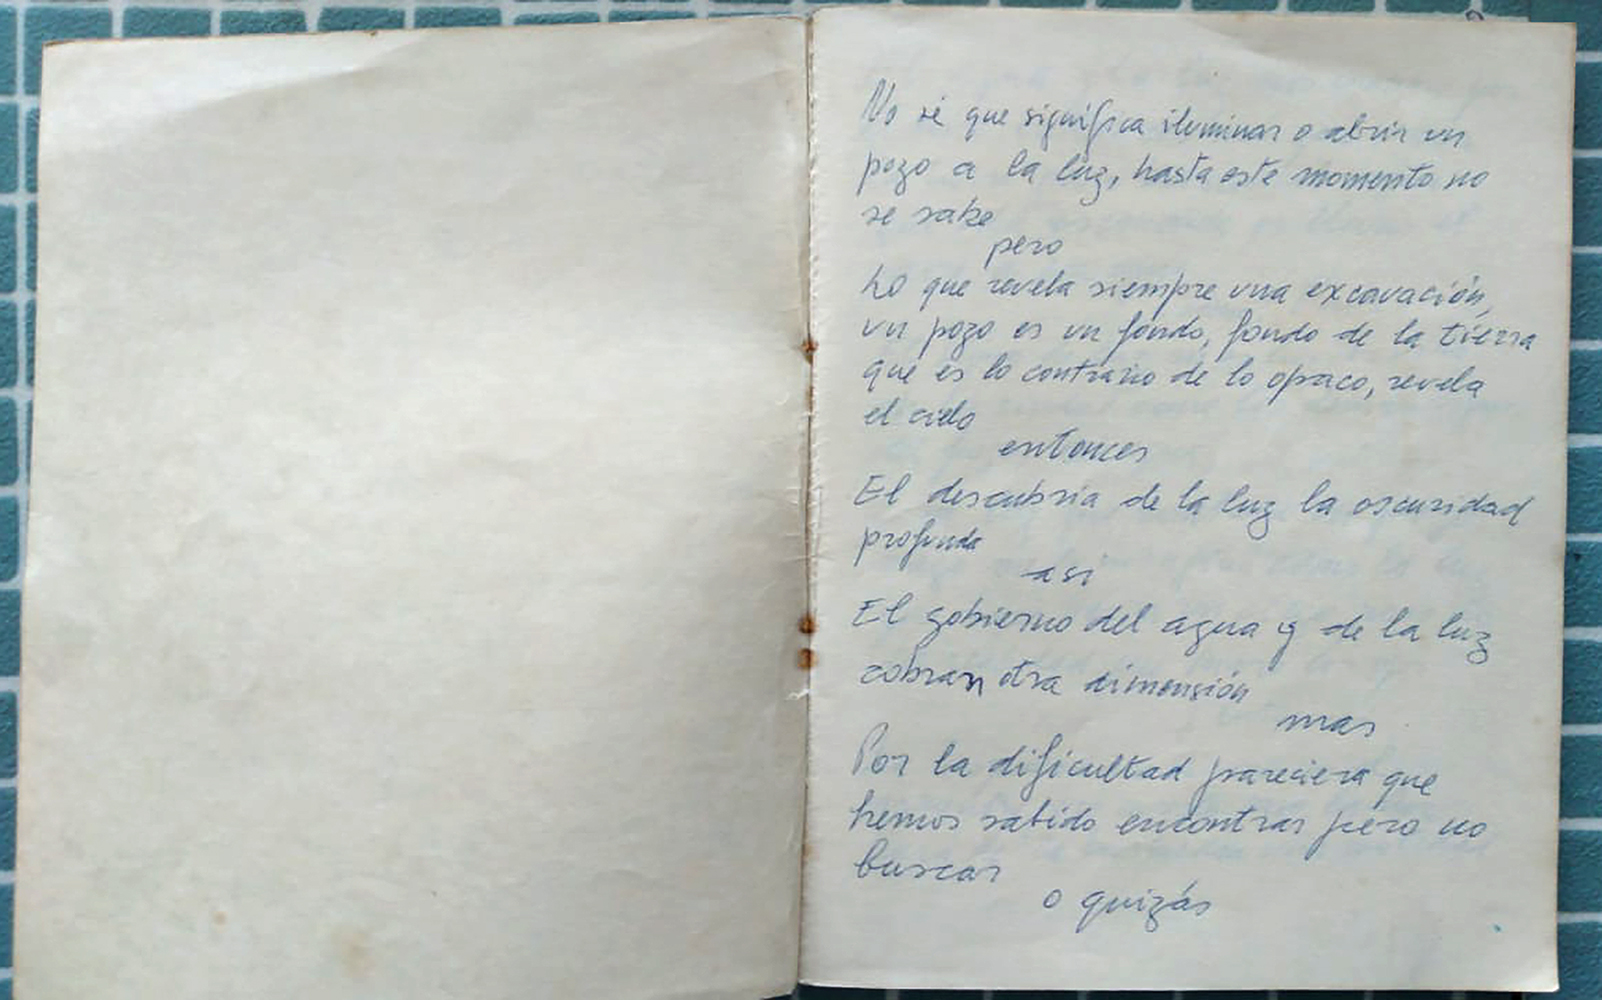 No sé que significa iluminar o abrir un
pozo a la luz, hasta este momento no
se sabe
pero
Lo que revela siempre una excavación,
un pozo es un fondo, fondo de la tierra
que es lo contrario de lo opaco, revela
el cielo
entonces
El descubria de la luz la oscuridad
profunda
asi
El gobierno del agua y de la luz
cobran otra dimensión
mas
Por la dificultad pareciera que
hemos sabido encontrar pero no
buscar
o quizás